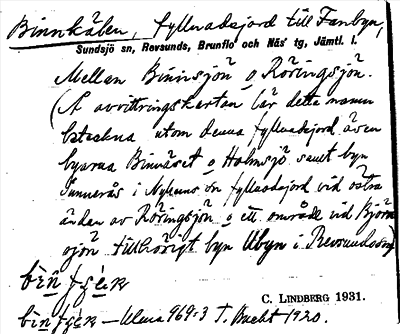 Binnkäben, fyllnadsjord till Fanbyn,
Sundsjö sn, Revsunds, Brunflo och Näs' tg, Jämtl. l.
Mellan Binnsjön o Röringsjön.
(Å avvittringskartan lär detta namn
beteckna utom denna fyllnadsjord även
byarna Binnäset o Holmsjö samt byn
i Nyhems sn fyllnadsjord vid östra
ändan av Röringsjön o ett område vid Björn
sjön tillhörigt byn Ubyn i Revsunds sn)
C. LINDBERG 1931.
Ulma 969:3 T. Bucht 1920.